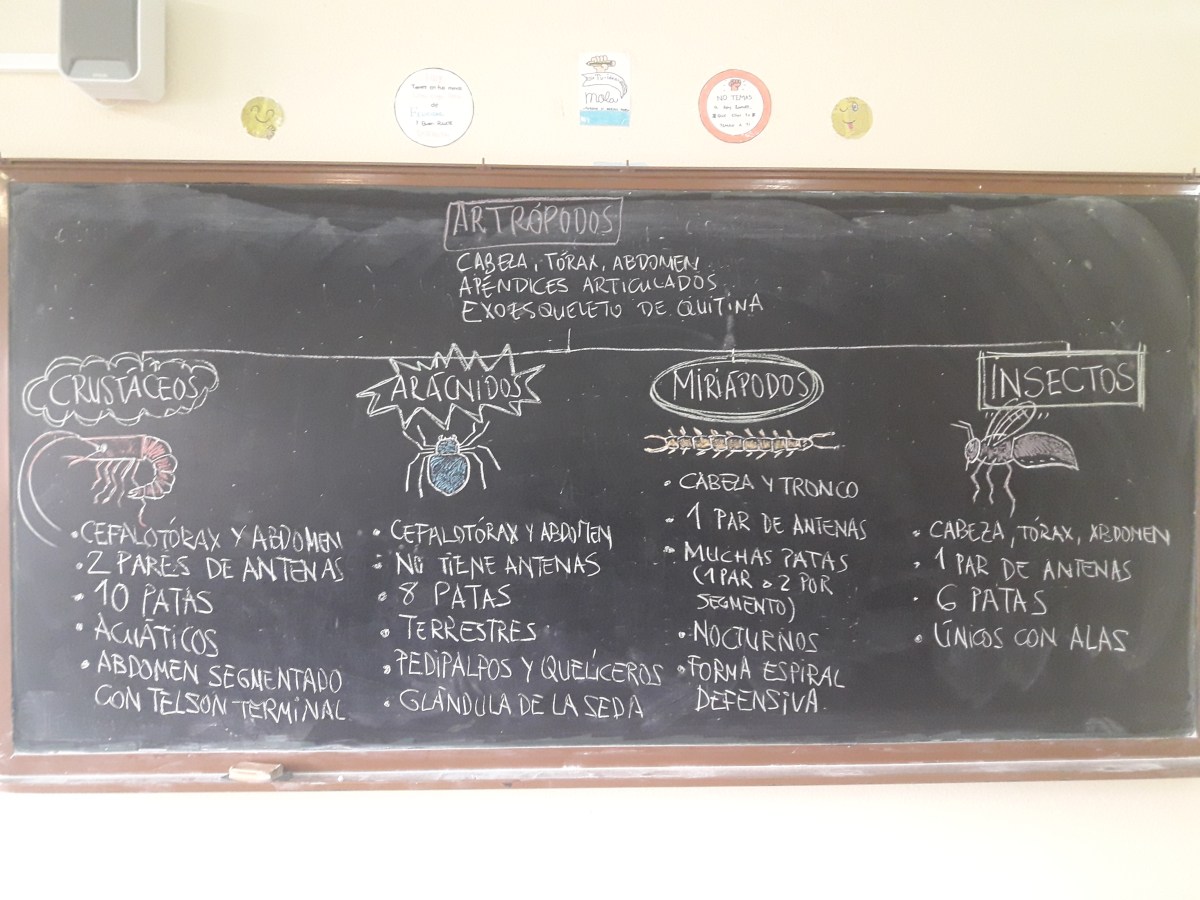 No TEMAS
mola
ARTRÓPODOS
CABEZA, TÓRAX, ABDOMEN
APÉNDICES ARTICULADOS
EXOESQUELETO DE QUITINA
CRUSTACEOS
CEFALOTÓRAX Y ABDOMEN
2 PARES DE ANTENAS
10 PATAS
ACUÁTICOS
ABDOMEN SEGMENTADO
CON TELSON TERMINAL
ARÁCNIDOS
CEFALOTÓRAX Y ABDOMEN
NO TIENE ANTENAS
8 PATAS
TERRESTRES
PEDIPALPOS Y QUELÍCEROS
GLÁNDULA DE LA SEDA
MIRIÁPODOS
CABEZA Y TRONCO
1 PAR DE ANTENAS
MUCHAS PATAS
(1 PAR o 2 POR
SEGMENTO)
NOCTURNOS
FORMA ESPIRAL
DEFENSIVA.
INSECTOS
CABEZA, TÓRAX, ABDOMEN
1 PAR DE ANTENAS
6 PATAS
ÚNICOS CON ALAS